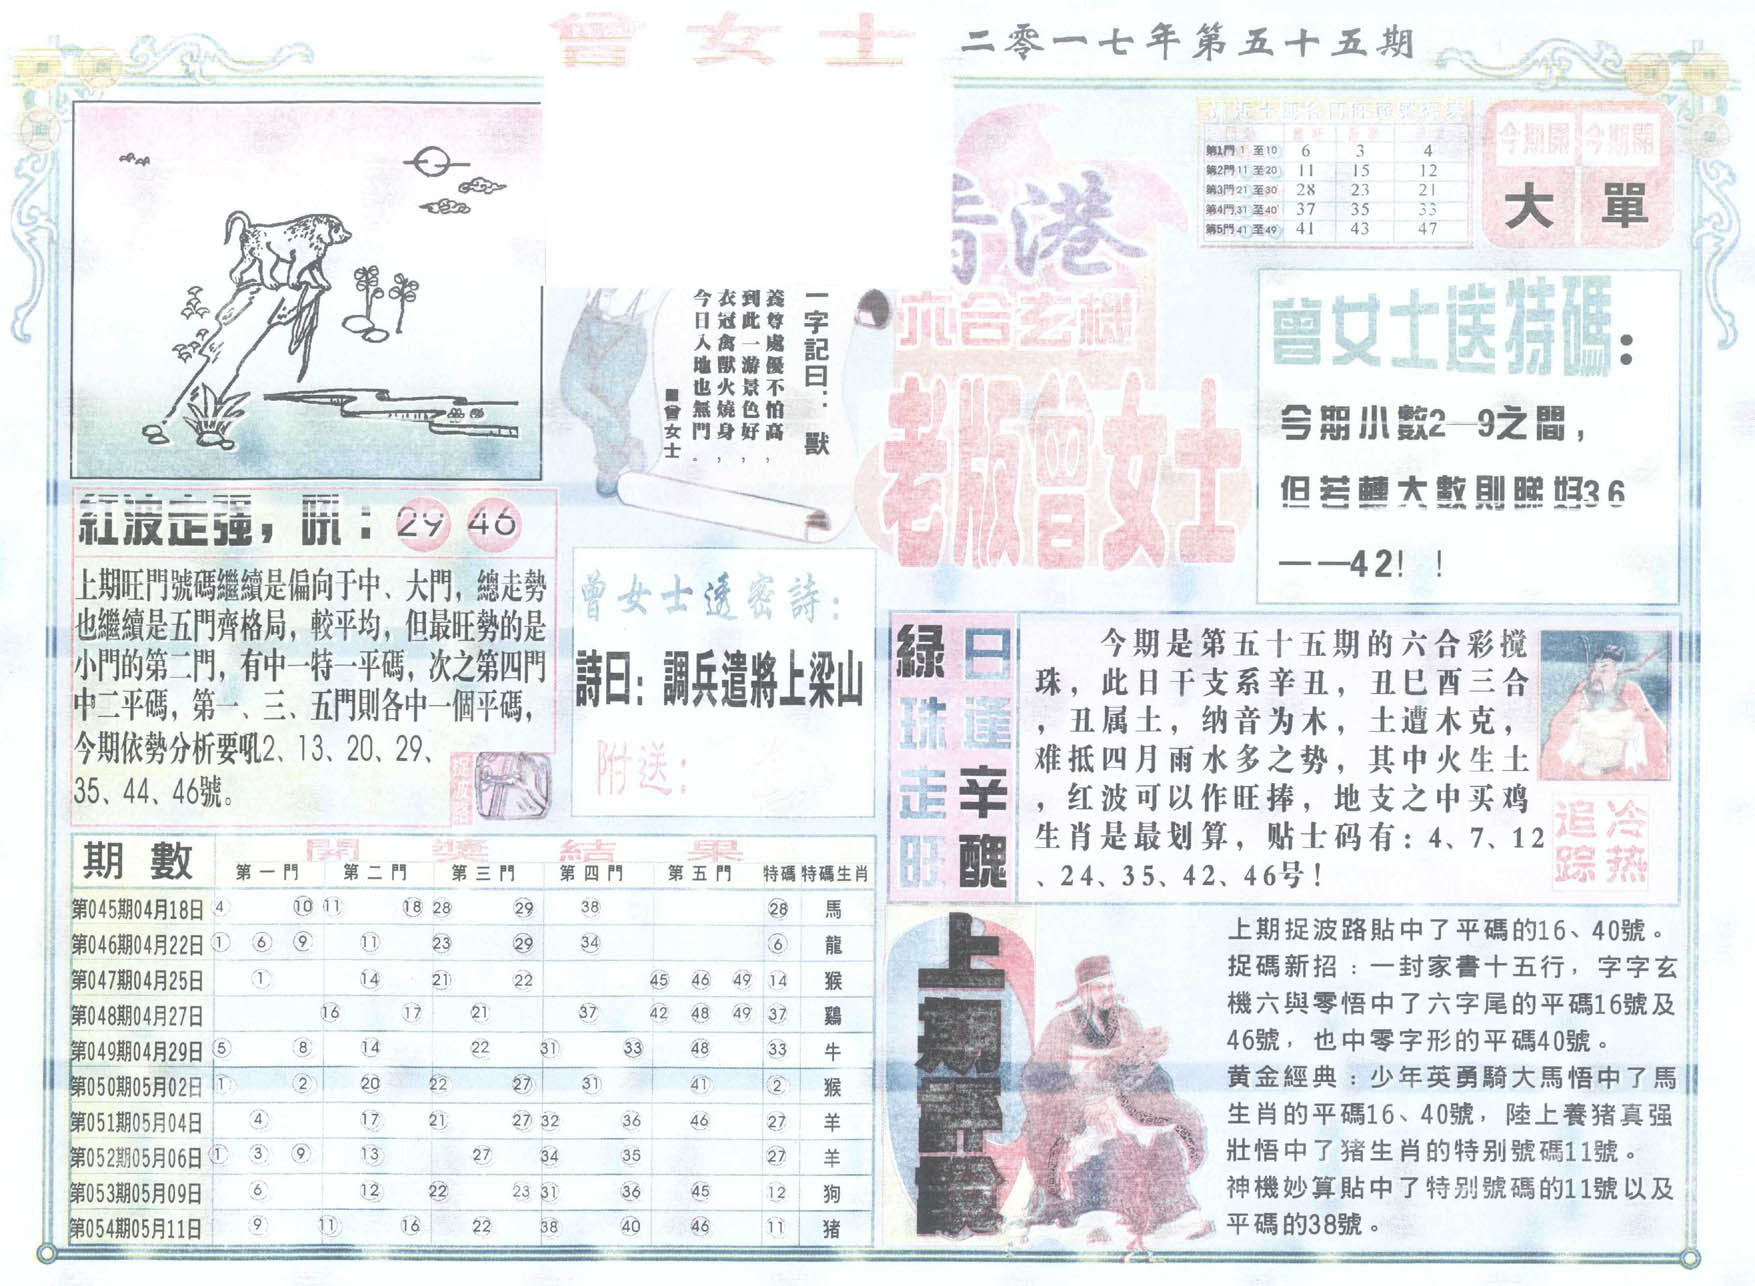 曾女士
二零一七年第五十五期
第1門 1 至10 6 3 4
第2門 11 至20 11 15 12
第3門 21 至30 28 23 21
第4門 31 至40 37 35 33
第5門 41 至49 41 43 47
今期開 今期開
大 單
香港
六合玄機
老版曾女士
一字記曰：獸
養尊處優不怕高，
到此一游景色好，
衣冠禽獸火燒身，
今日入地也無門。
曾女士
曾女士送特碼：
今期小數2—9之間，
但若轉大數則睇好36
——42！！
紅波走强，吼：29 46
上期旺門號碼繼續是偏向于中、大門，總走勢
也繼續是五門齊格局，較平均，但最旺勢的是
小門的第二門，有中一特一平碼，次之第四門
中二平碼，第一、三、五門則各中一個平碼，
今期依勢分析要吼2、13、20、29、
35、44、46號。
捉波路
曾女士透密詩：
詩曰：調兵遣將上梁山
附送：
綠珠走旺
日逢辛醜
今期是第五十五期的六合彩搅
珠，此日干支系辛丑，丑巳酉三合
，丑属土，纳音为木，土遭木克，
难抵四月雨水多之势，其中火生土
，红波可以作旺捧，地支之中买鸡
生肖是最划算，贴士码有：4、7、12
、24、35、42、46号！
冷热
追踪
期數 開獎結果
第一門 第二門 第三門 第四門 第五門 特碼 特碼生肖
第045期04月18日 4 10 11 18 28 29 38 28 馬
第046期04月22日 1 6 9 11 23 29 34 6 龍
第047期04月25日 1 14 21 22 45 46 49 14 猴
第048期04月27日 16 17 21 37 42 48 49 37 鷄
第049期04月29日 5 8 14 22 31 33 48 33 牛
第050期05月02日 1 2 20 22 27 31 41 2 猴
第051期05月04日 4 17 21 27 32 36 46 27 羊
第052期05月06日 1 3 9 13 27 34 35 27 羊
第053期05月09日 6 12 22 23 31 36 45 12 狗
第054期05月11日 9 11 16 22 38 40 46 11 猪
上期評彩
上期捉波路貼中了平碼的16、40號。
捉碼新招：一封家書十五行，字字玄
機六與零悟中了六字尾的平碼16號及
46號，也中零字形的平碼40號。
黄金經典：少年英勇騎大馬悟中了馬
生肖的平碼16、40號，陸上養猪真强
壯悟中了猪生肖的特别號碼11號。
神機妙算貼中了特别號碼的11號以及
平碼的38號。